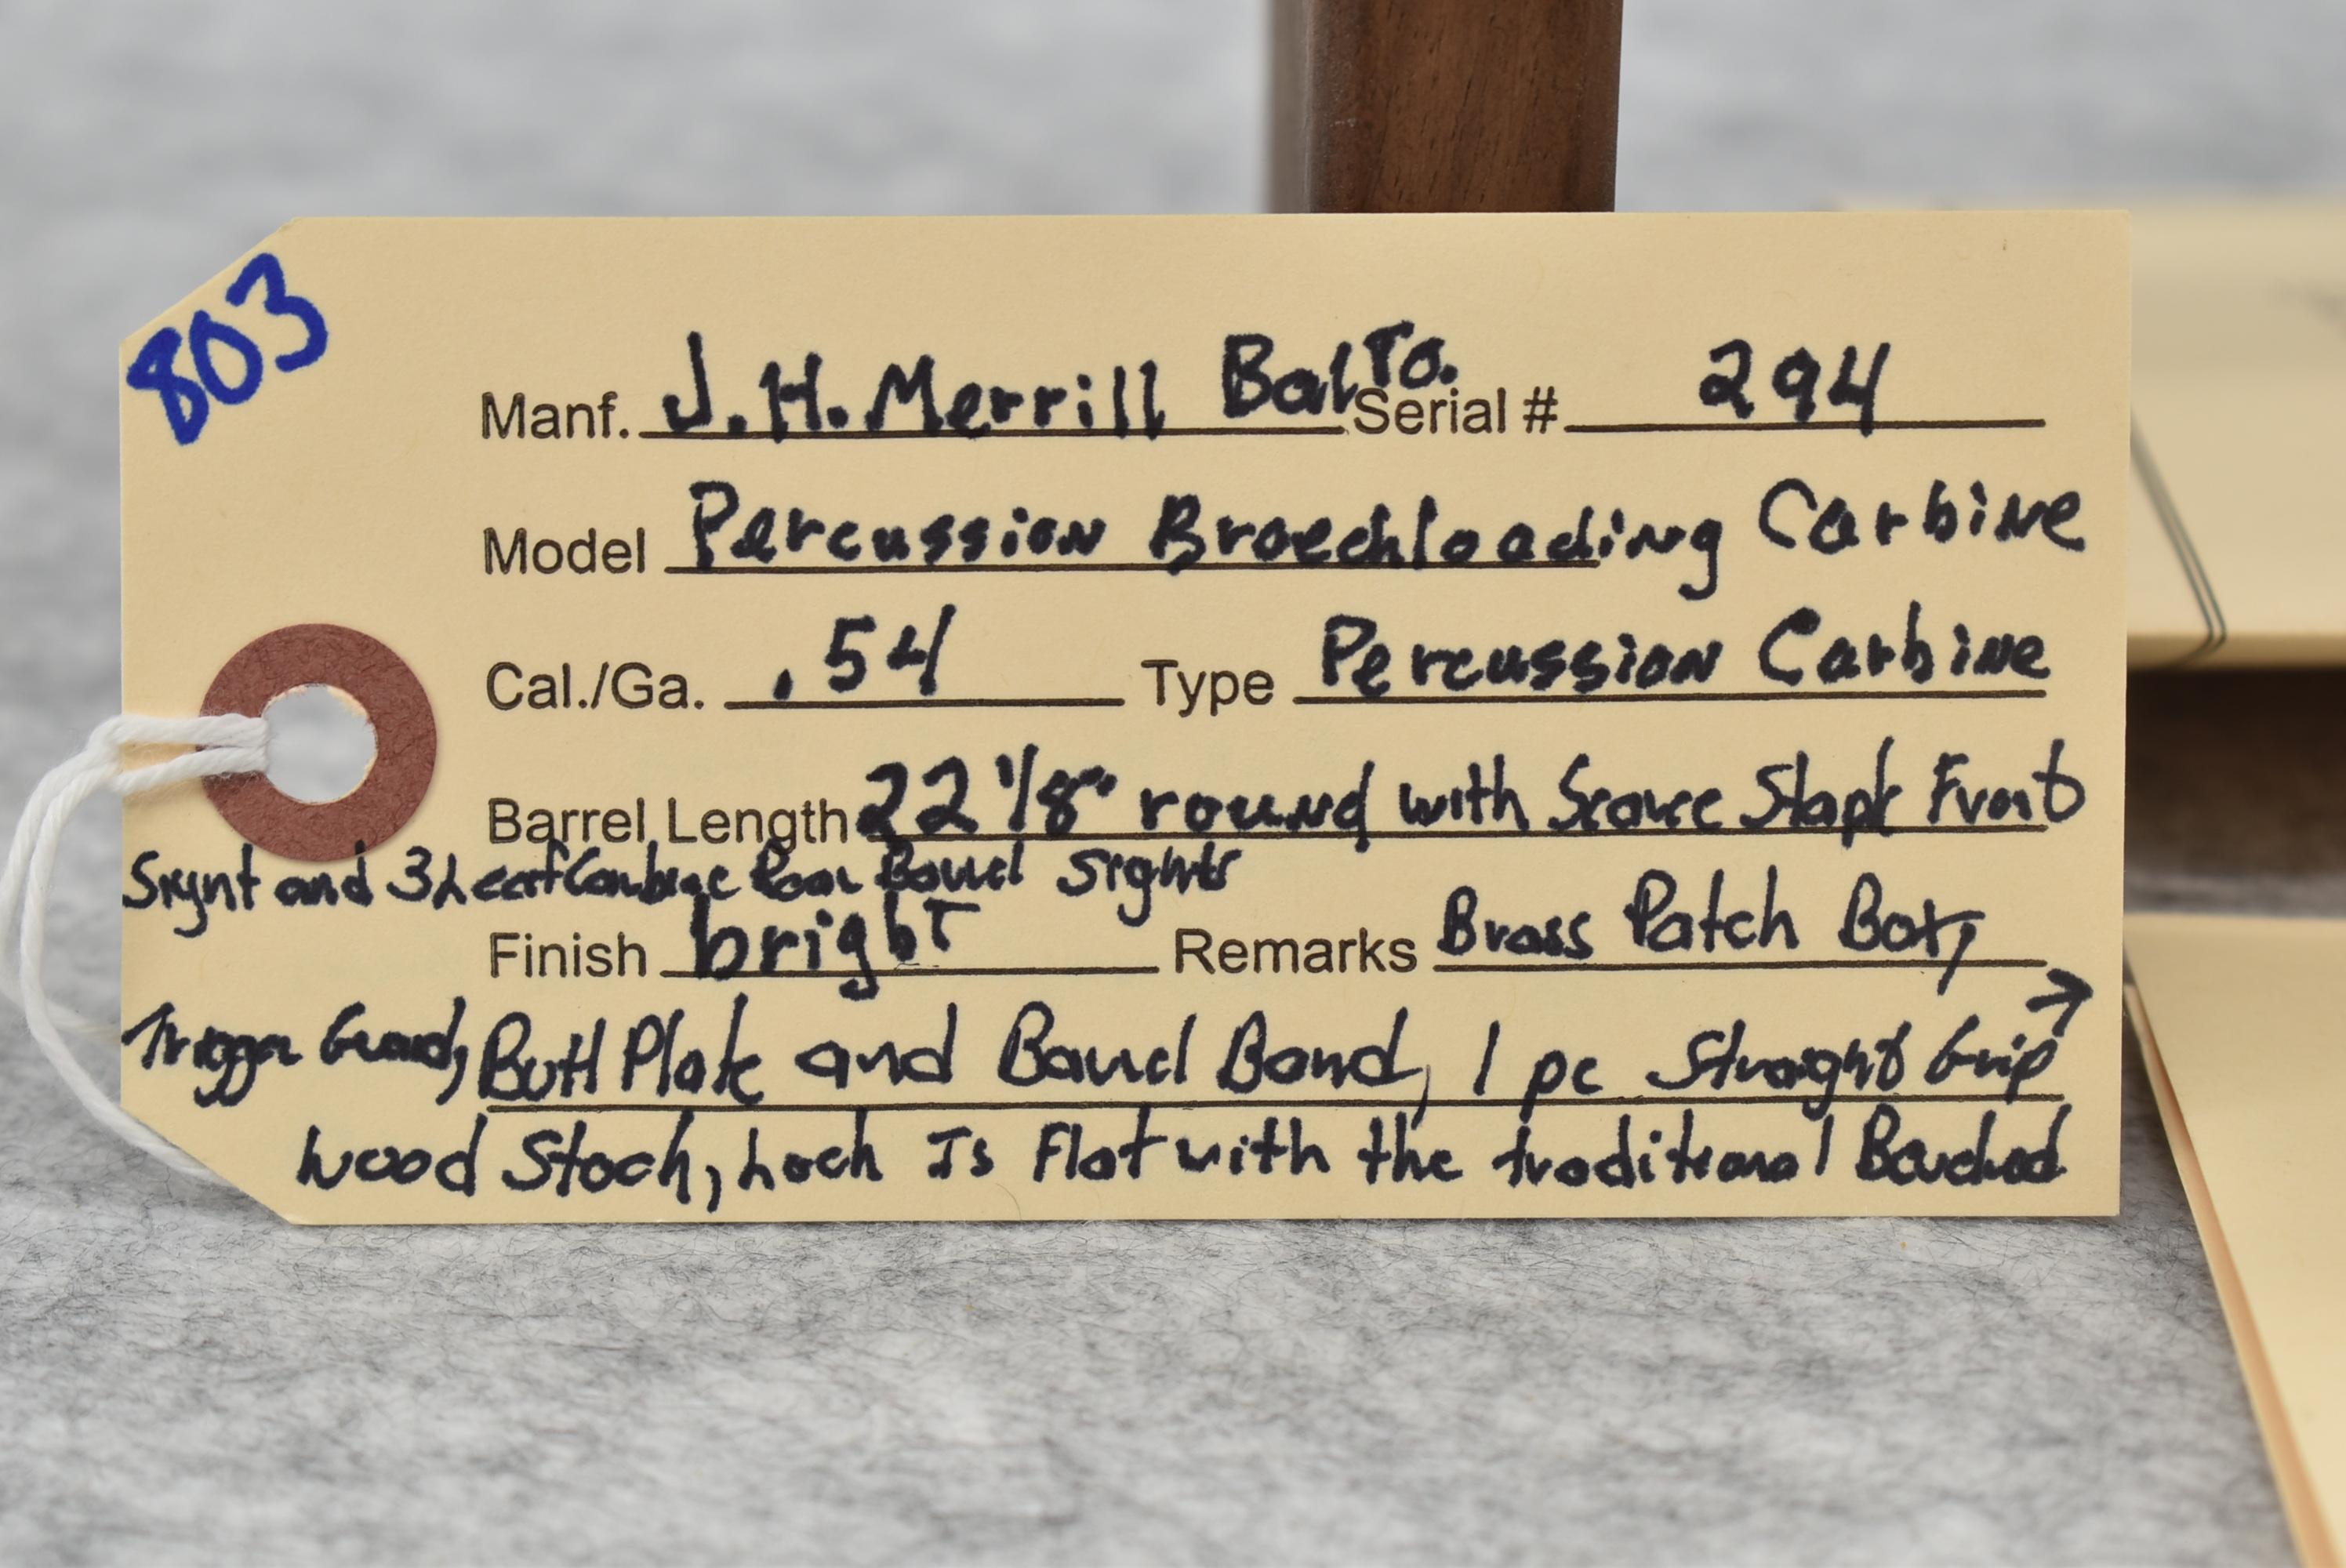 803
Manf. J.H. Merrill Balto. Serial # 294
Model Percussion Breechloading Carbine
Cal./Ga. .54 Type Percussion Carbine
Barrel Length 22 1/8" round with Front
Sight and 3 Leaf Carbine Rear Barrel Sights
Finish bright Remarks Brass Patch Box,
Trigger Guard, Butt Plate and Barrel Band, 1 pc Straight Grip →
Wood Stock, Lock Is Flat with the traditional